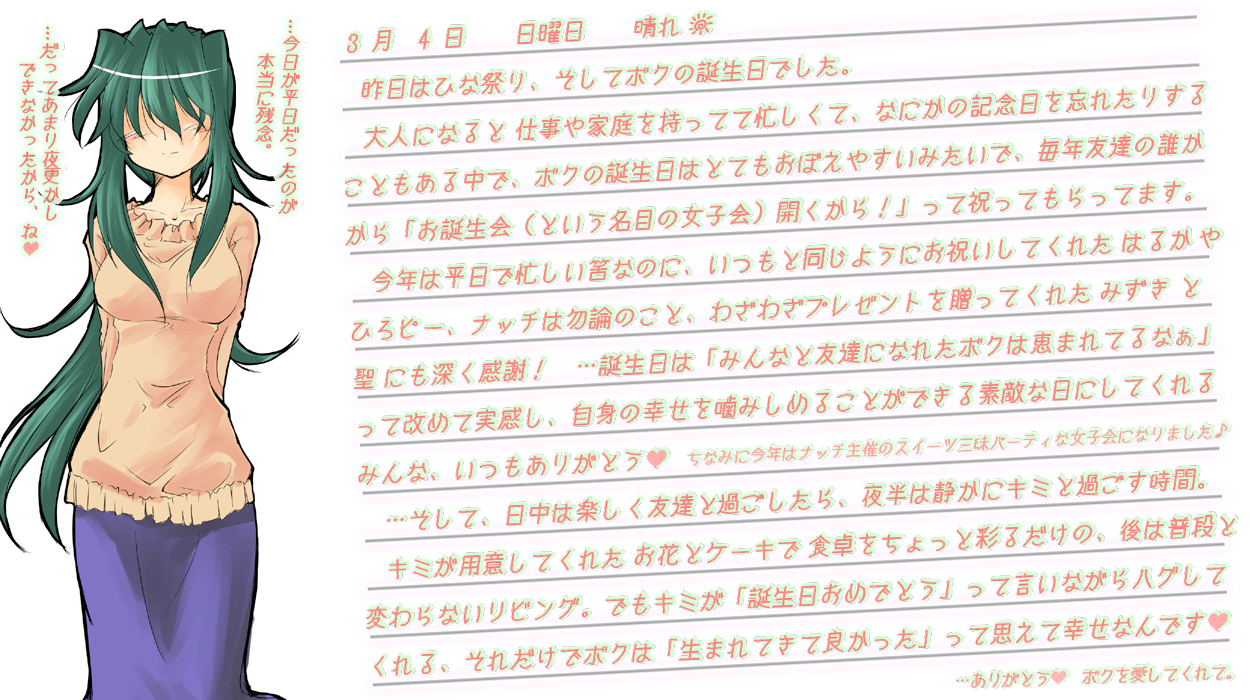 …今日が平日だったのが
本当に残念。
…だってあまり夜更かし
できなかったから、ね♥
3月 4日 日曜日 晴れ☀
昨日はひな祭り、そしてボクの誕生日でした。
大人になると 仕事や家庭を持ってて忙しくて、なにかの記念日を忘れたりする
こともある中で、ボクの誕生日はとてもおぼえやすいみたいで、毎年友達の誰か
から「お誕生会（という名目の女子会）開くから！」って祝ってもらってます。
今年は平日で忙しい筈なのに、いつもと同じようにお祝いしてくれた はるか や
ひろピー、ナッチは勿論のこと、わざわざプレゼントを贈ってくれた みずき と
聖 にも深く感謝！ …誕生日は「みんなと友達になれたボクは恵まれてるなぁ」
って改めて実感し、自身の幸せを噛みしめることができる素敵な日にしてくれる
みんな、いつもありがとう♥ ちなみに今年はナッチ主催のスイーツ三昧パーティな女子会になりました♪
…そして、日中は楽しく友達と過ごしたら、夜半は静かにキミと過ごす時間。
キミが用意してくれた お花とケーキで 食卓をちょっと彩るだけの、後は普段と
変わらないリビング。でもキミが「誕生日おめでとう」って言いながらハグして
くれる、それだけでボクは「生まれてきて良かった」って思えて幸せなんです♥
…ありがとう♥ ボクを愛してくれて。